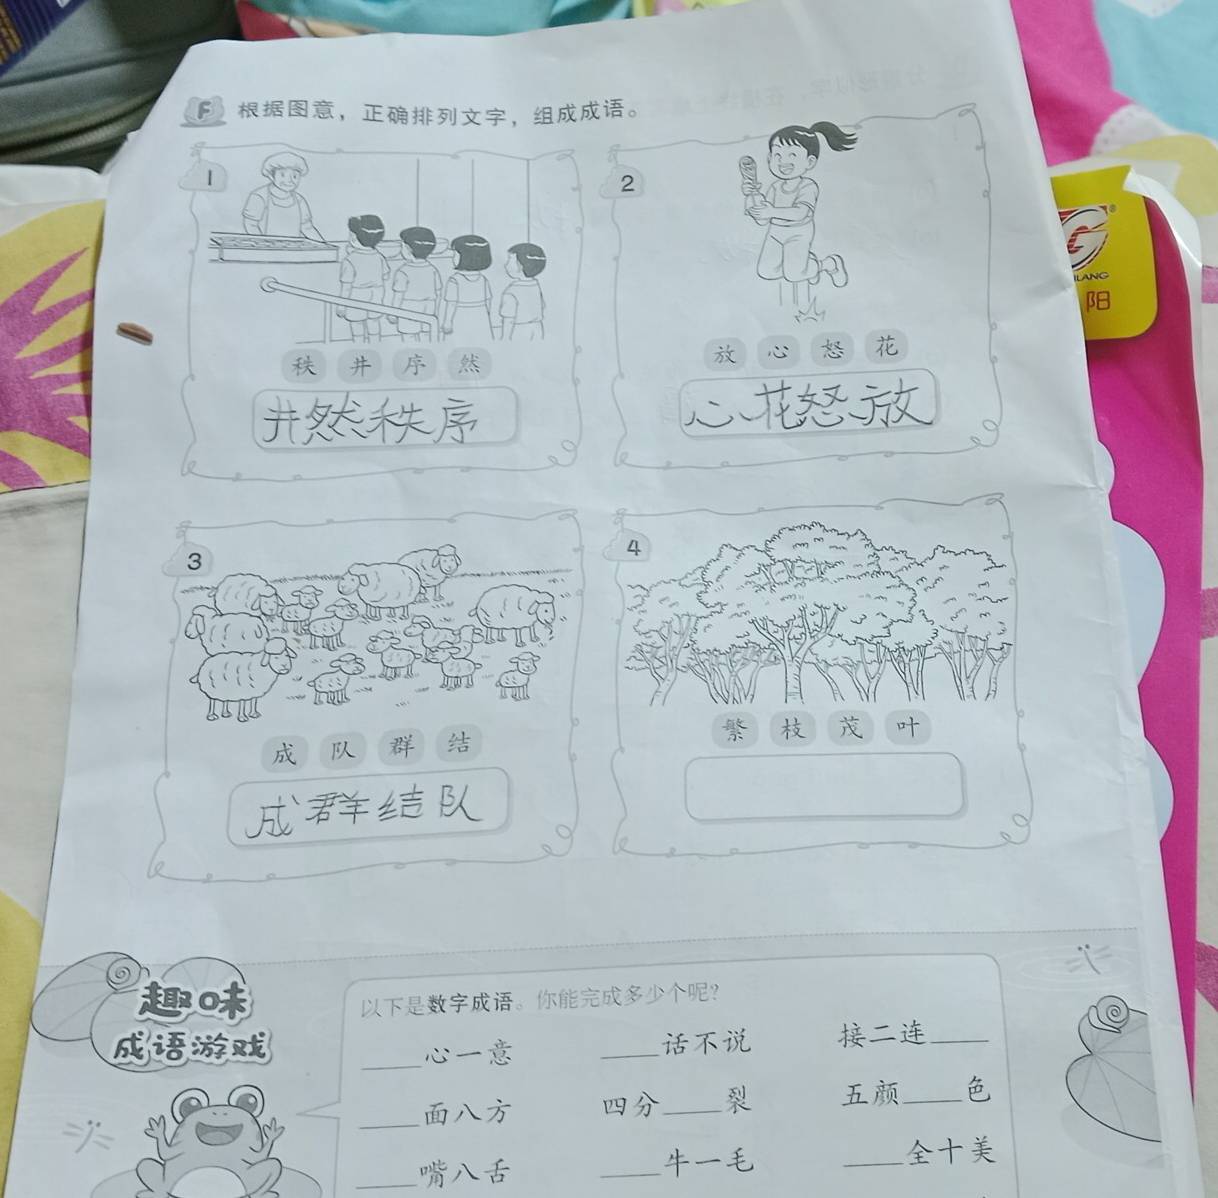 F 根据图意，正确排列文字，组成成语。
1
秩 井 序 然
井然秩序
2
放 心 怒 花
心花怒放
3
成 队 群 结
成群结队
4
繁 枝 茂 叶
趣味
成语游戏
以下是数字成语。你能完成多少个呢？
____心一意 ____话不说 接二连____
____面八方 四分____裂 五颜____色
____嘴八舌 ____牛一毛 ____全十美
G®
LANG
阳